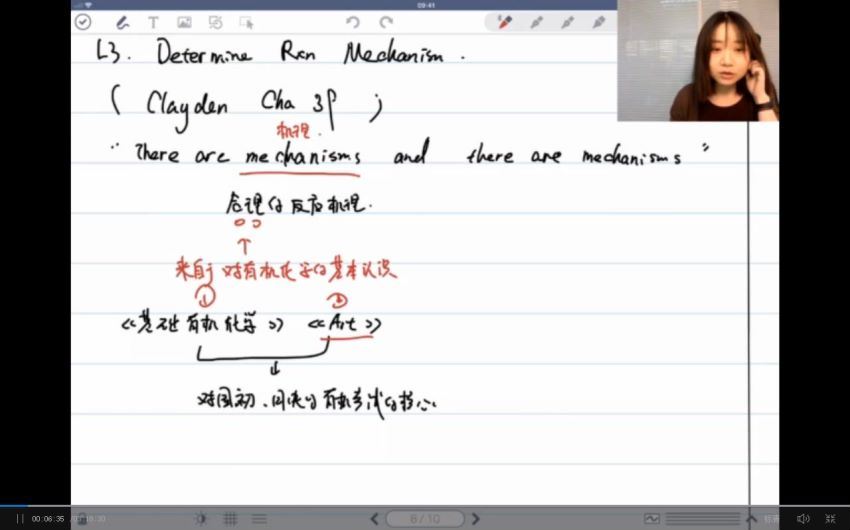 09:41
L3. Determine Rxn Mechanism.
( Clayden Cha 39 ;
机理.
"There are mechanisms and there are mechanisms"
合理的反应机理.
来自于对有机化学的基本认识
① ②
《基础有机化学》 《Art》
对国初、国决的有机考试的核心
00:06:35
6/10
标清